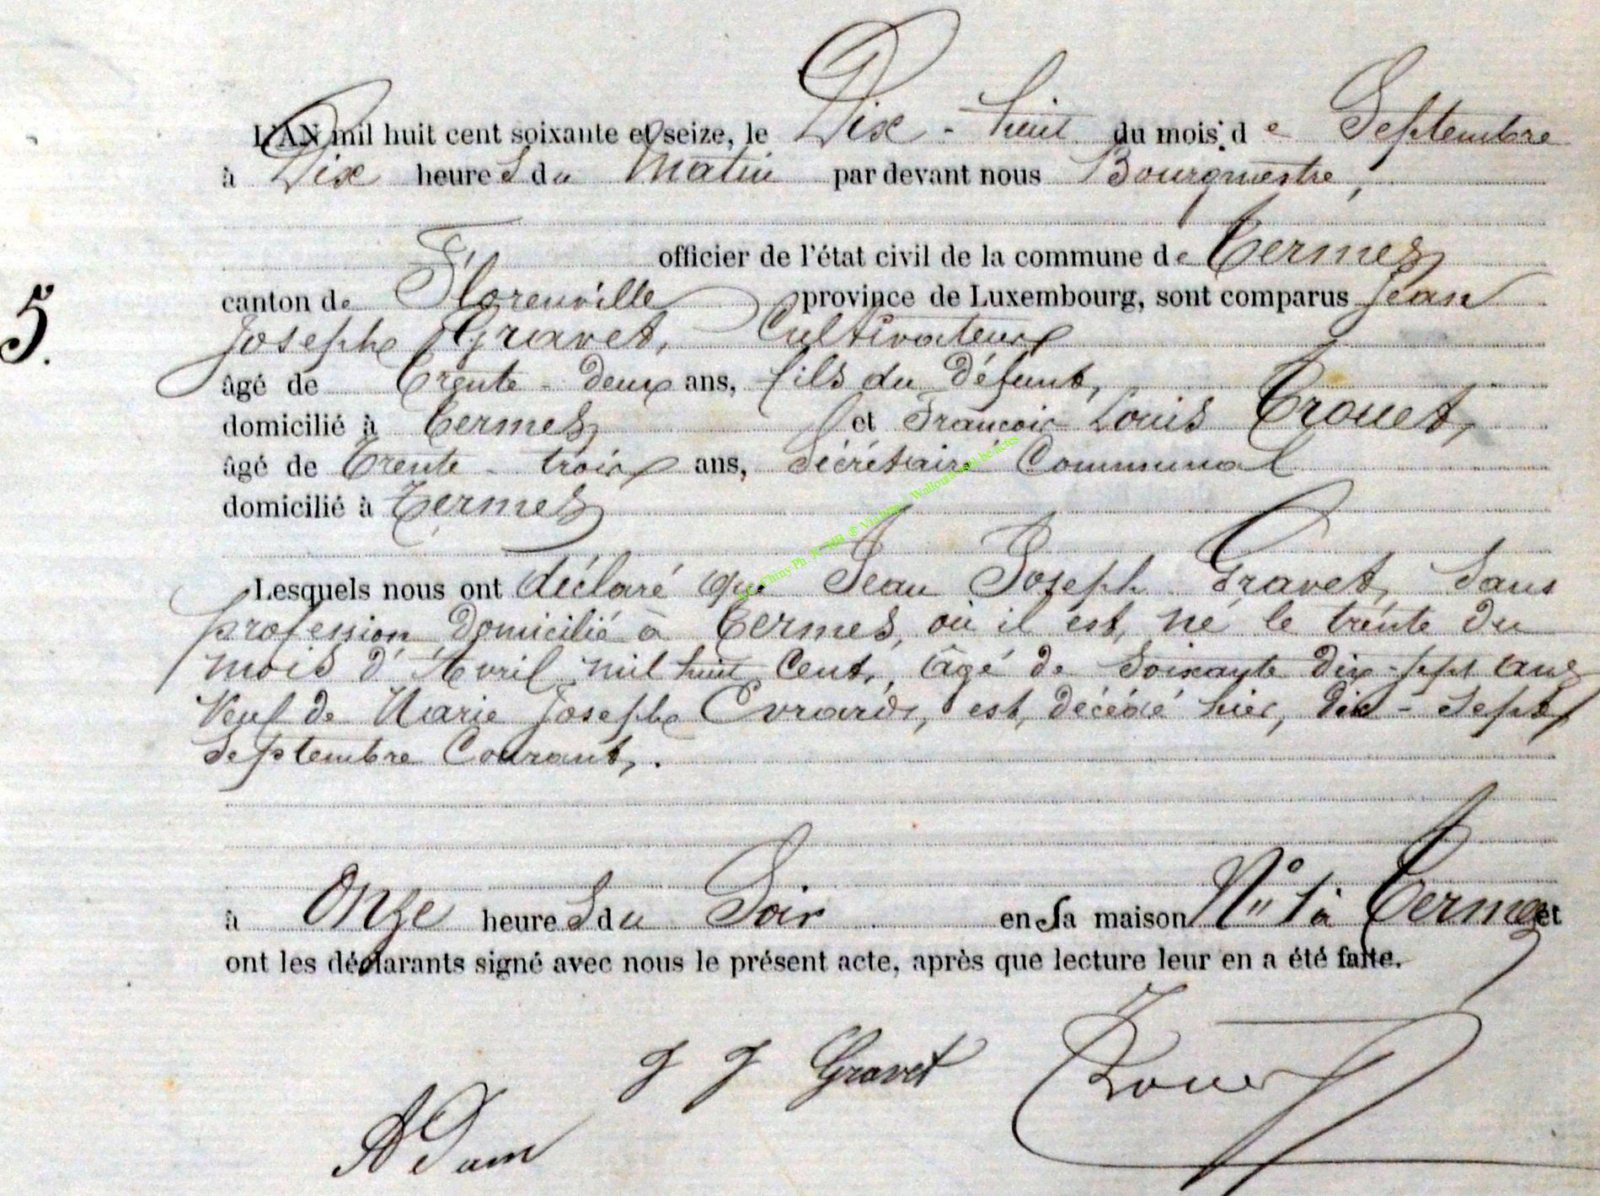 L'AN mil huit cent soixante et seize, le Dix-huit du mois de Septembre
à Dix heures du Matin par devant nous Bourgmestre,
officier de l'état civil de la commune de Termes
canton de Florenville province de Luxembourg, sont comparus Jean
5.
Joseph Gravet, Cultivateur
âgé de trente-deux ans, fils du défunt,
domicilié à Termes et François Louis Trouet,
âgé de trente-trois ans, Sécrétaire Communal
domicilié à Termes
Lesquels nous ont déclaré que Jean Joseph Gravet, Sans
profession domicilié à Termes, où il est né le trente du
mois d'Avril mil huit Cent, âgé de Soixante dix-sept ans
Veuf de Marie Josephe Evrard, est décédé hier, dix-sept
Septembre Courant,.
à Onze heures du Soir en sa maison N° 1 à Termes et
ont les déclarants signé avec nous le présent acte, après que lecture leur en a été faite.
J J Gravet Trouet
A Dam